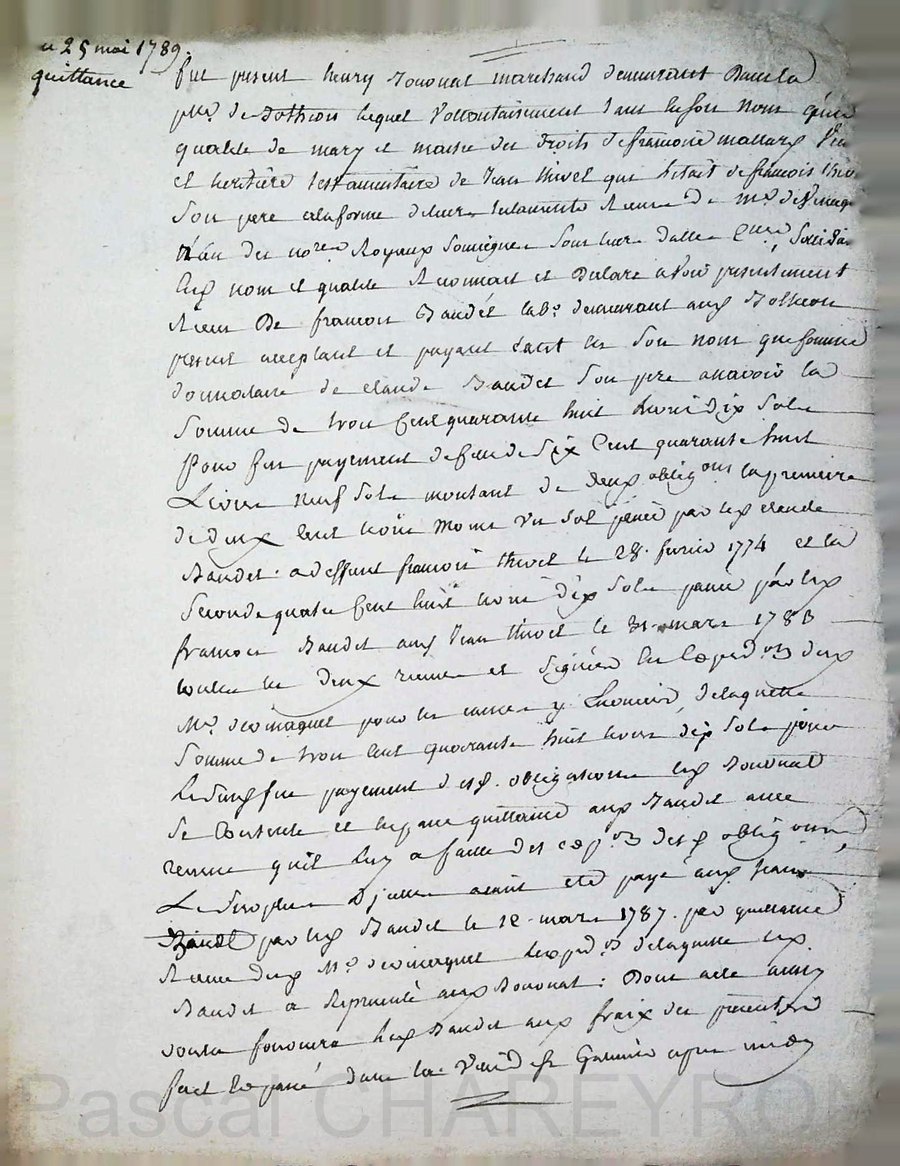 du 25 mai 1789.
quittance
fut present henry Bouvnat marchand demeurant dans la
psse de Bothéon lequel vollontairement tant en son nom qu'en
qualité de mary et maitre des droits de françoise mallary veuve
et heritière testamentaire de jean thivel qui l'était de françois thivel
son père a la forme de leurs testaments Reçus de Me de
l'un des nores Royaux soussignés sous leurs dattes
en nom et qualité Reconnait et Declare avoir presentement
Reçu De françois Baudet labr demeurant aud Bothéon
present acceptant et payant tant en son nom que comme
donnataire de claude Baudet son père a savoir la
somme de trois cent quarante huit livres dix sols
pour fin payement de celle de six cent quarante huit
Livres neuf sols montant de deux obligons la premiere
de deux cent trois moins un sol passée par led claude
Baudet a deffunt françois thivel le 28 fevrier 1774 et la
seconde quatre cent huit livres dix sols passée par led
françois Baudet aud jean thivel le 31 mars 1783
toutes les deux reçues et signées en expedons dud
Me pour les causes y enoncées, de laquelle
somme de trois cent quarante huit livres dix sols pour
le dit fin payement desd. obligations led Bouvnat
se contente et en passe quittance aud Baudet avec
remise qu'il luy a faitte des expons desd obligons
Le surplus d'icelles ayant eté payé aud jean
par led Baudet le 12 mars 1787. par quittance
Reçue dud Me expeds de laquelle led.
Baudet a representé aud Bouvnat: Dont acte
voulu fournira led Baudet aux fraix des presentes
fait et passé dans la de Galmier apres midy
Pascal CHAREYRON